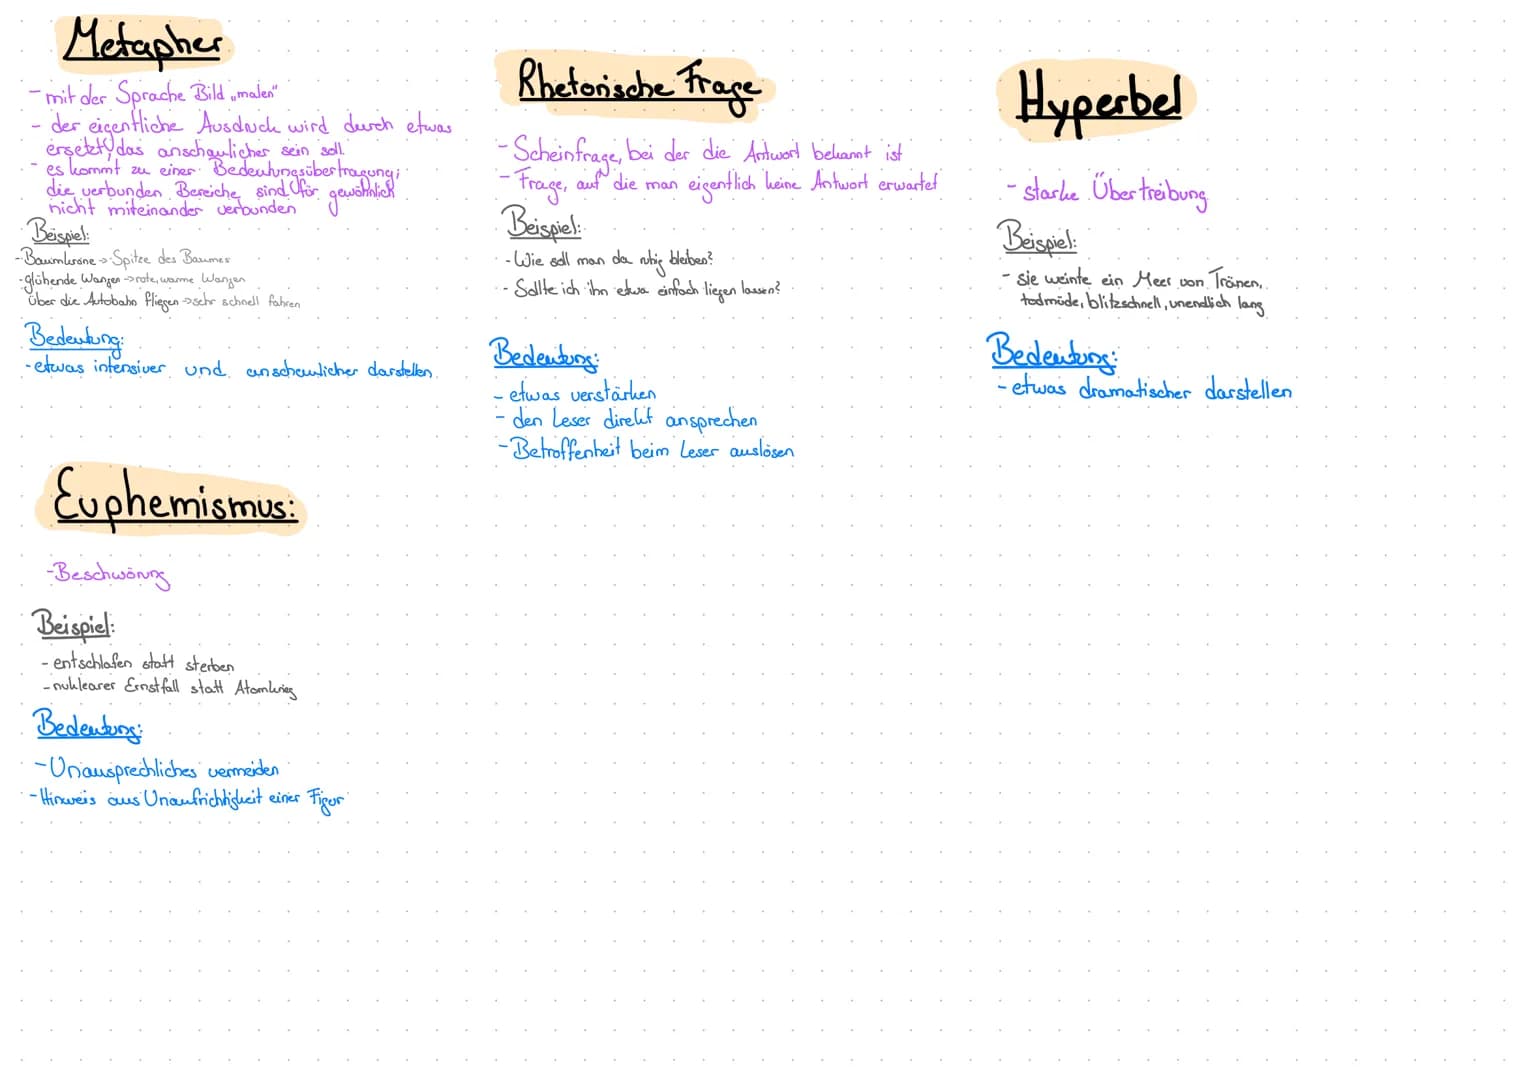 Metapher
- mit der Sprache Bild „malen"
- der eigentliche Ausdruck wird durch etwas
ersetzt, das anschaulicher sein soll
- es kommt zu einer Bedeutungsübertragung;
die verbunden Bereiche sind für gewöhnlich
nicht miteinander verbunden
Beispiel:
- Baumkrone -> Spitze des Baumes
- glühende Wangen -> rote, warme Wangen
Über die Autobahn fliegen -> sehr schnell fahren
Bedeutung:
- etwas intensiver und anschaulicher darstellen
Rhetorische Frage
- Scheinfrage, bei der die Antwort bekannt ist
- Frage, auf die man eigentlich keine Antwort erwartet
Beispiel:
- Wie soll man da ruhig bleiben?
- Sollte ich ihn etwa einfach liegen lassen?
Bedeutung:
- etwas verstärken
- den Leser direkt ansprechen
- Betroffenheit beim Leser auslösen
Hyperbel
- starke Übertreibung
Beispiel:
- sie weinte ein Meer von Tränen,
todmüde, blitzschnell, unendlich lang
Bedeutung:
- etwas dramatischer darstellen
Euphemismus:
- Beschwörung
Beispiel:
- entschlafen statt sterben
- nuklearer Ernstfall statt Atomkrieg
Bedeutung:
- Unausprechliches vermeiden
- Hinweis aus Unaufrichtigkeit einer Figur